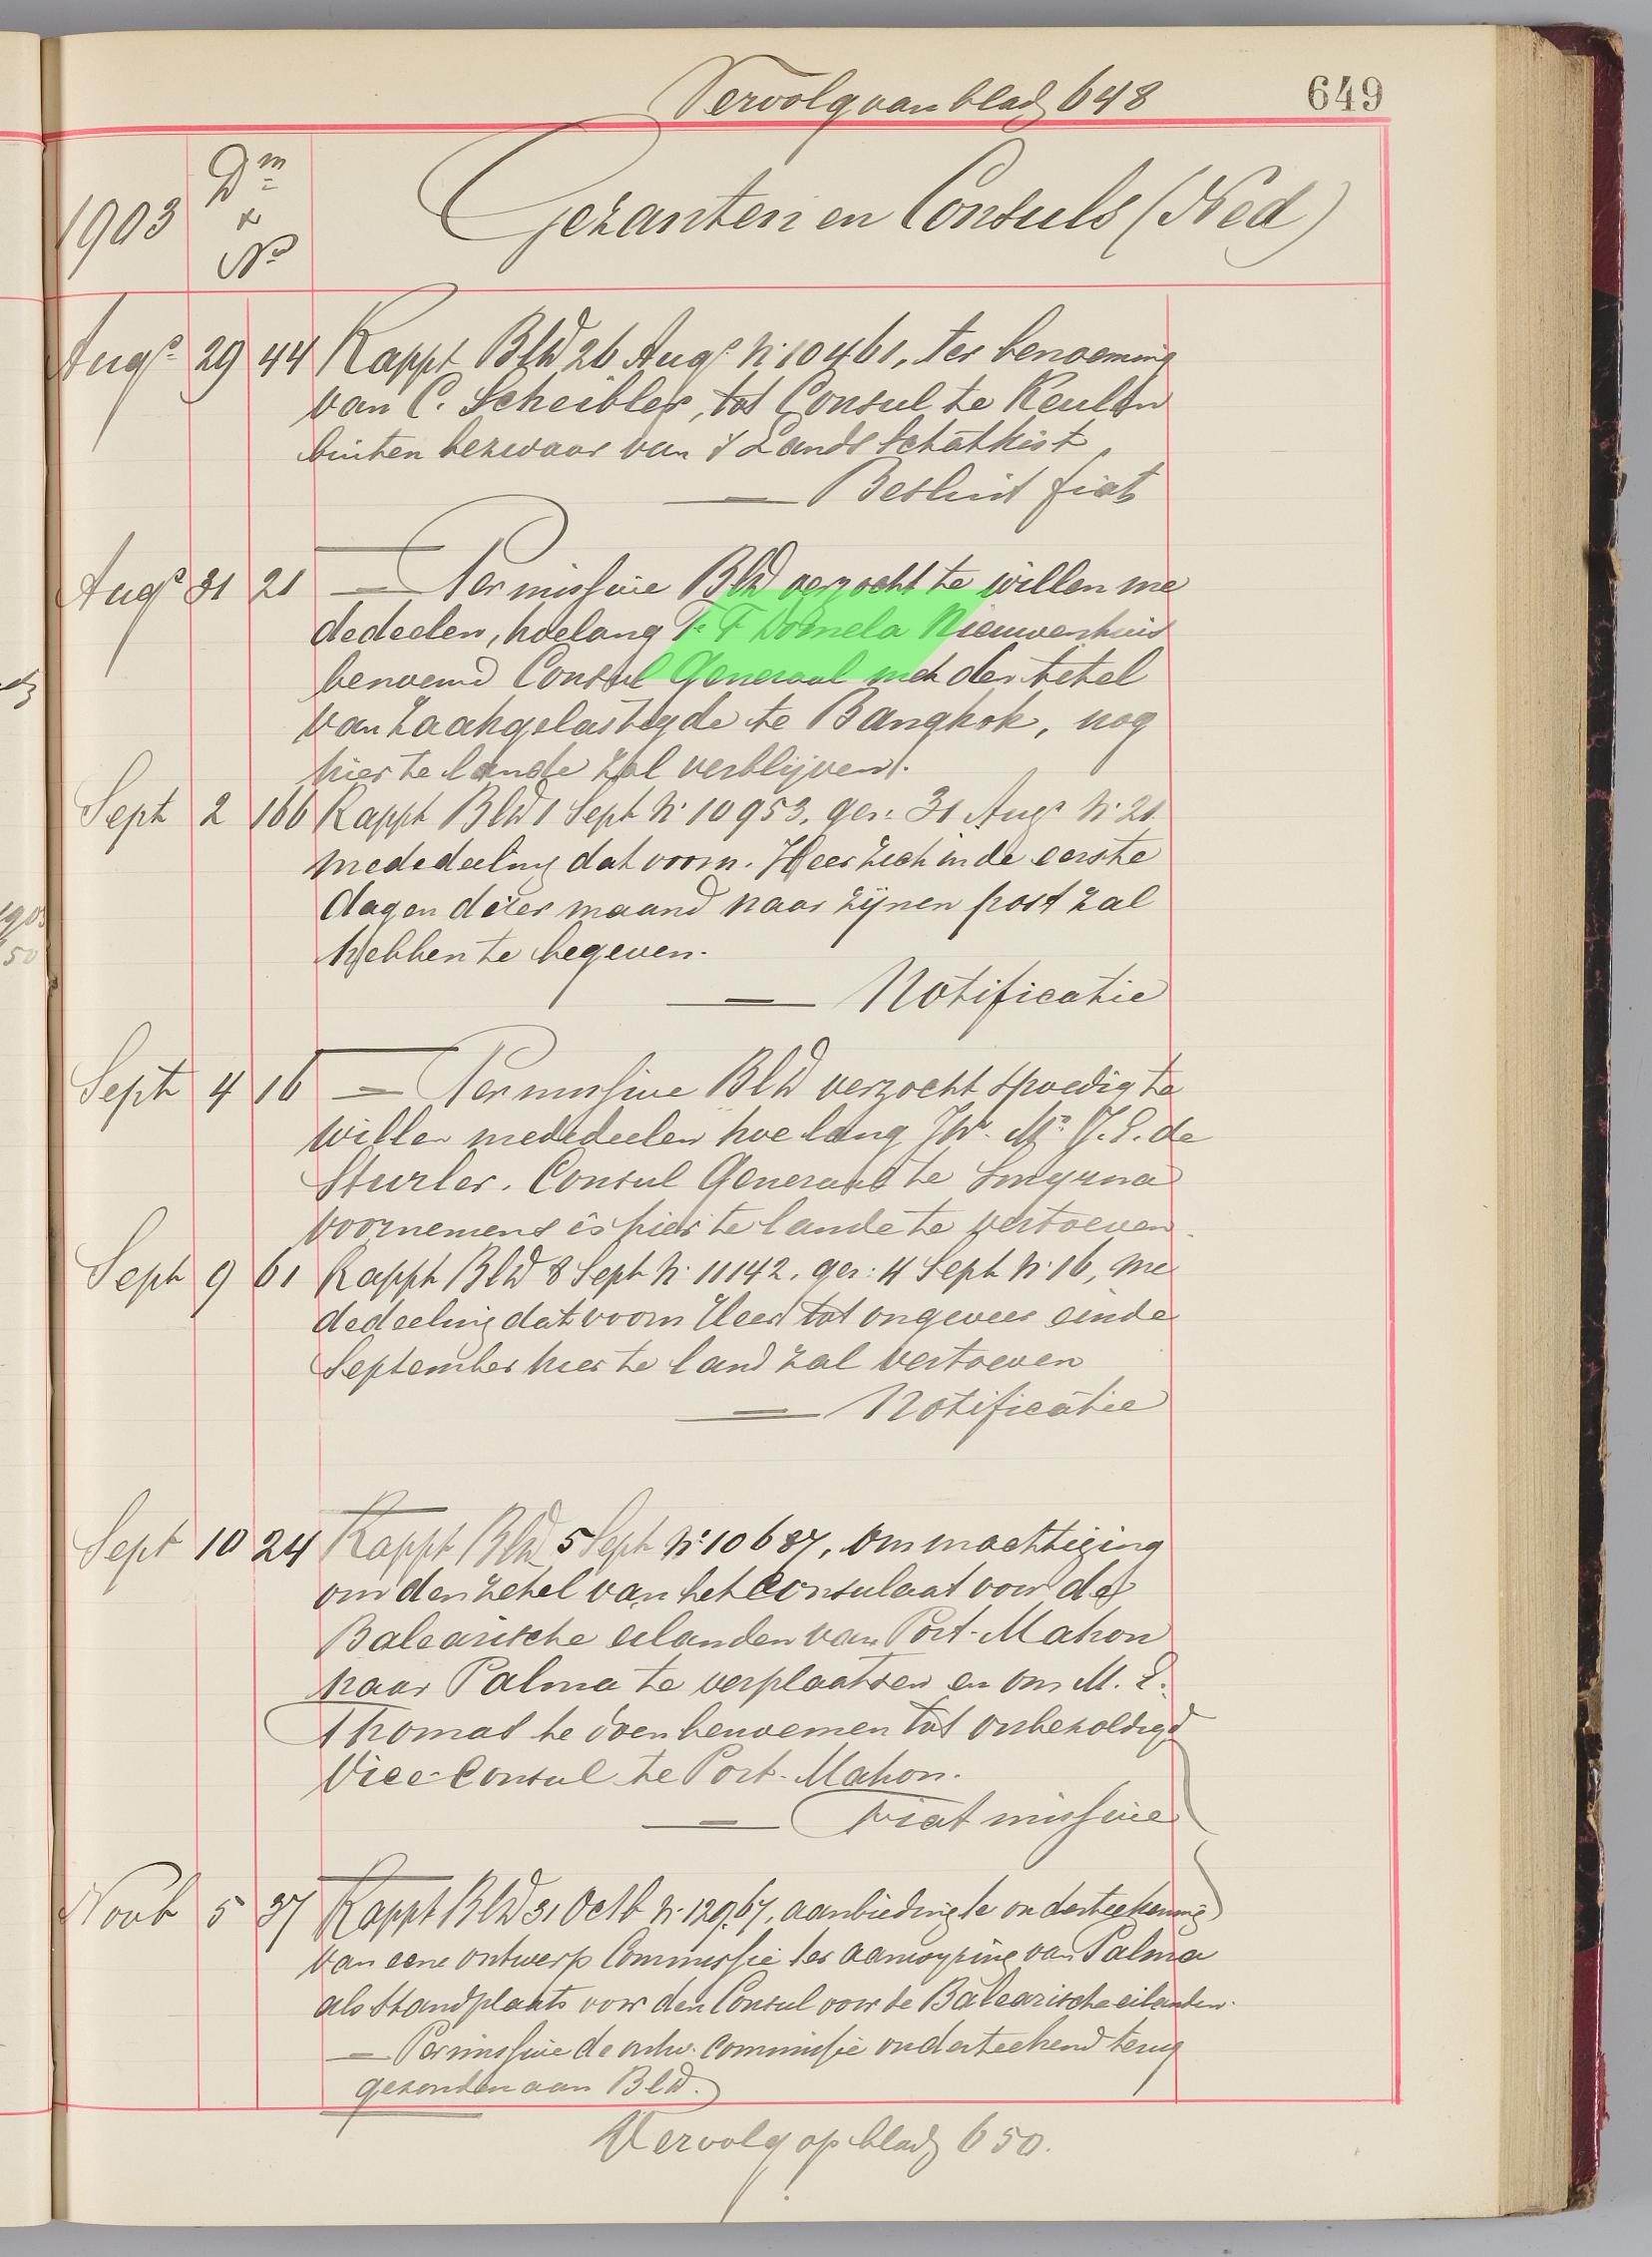 Vervolg van bladz 648
649
1903
Dm
&
No
Gezanten en Consuls (Ned)
Augs 29 44 Rappt BlW 26 Augs N: 10461, ter benoeming
van C. Scheibler, tot Consul te Keulen
buiten bezwaar van 's Lands Schatkist
Besluit fiat
Augs 31 21 — Per missive BlW verzocht te willen me
dedeelen, hoelang F. F Domela Nieuwenhuis
benoemd Consul Generaal met den titel
van Zaakgelastigde te Bangkok, nog
hier te lande zal verblijven.
Sept 2 166 Rappt BlW 1 Sept N: 10953, ger: 31 Augs N: 21
mededeeling dat voorn. Heer zich in de eerste
dagen dezer maand naar zijnen post zal
hebben te begeven.
— Notificatie
Sept 4 16 — Per missive BlW verzocht spoedig te
willen mededeelen hoe lang Jhr. Mr J. E. de
Sturler. Consul Generaal te Smyrna
voornemens is hier te lande te vertoeven.
Sept 9 61 Rappt BlW 8 Sept N: 11142, ger: 4 Sept N: 16, me
dedeeling dat voorn Heer tot ongeveer einde
September hier te land zal vertoeven
— Notificatie
Sept 10 24 Rappt BlW 5 Sept N: 10687, om machtiging
om den zetel van het Consulaat voor de
Balearische eilanden van Port-Mahon
naar Palma te verplaatsen en om M. E.
Thomas te doen benoemen tot onbezoldigd
Vice-Consul te Port-Mahon.
— Fiat missive
Novb 5 37 Rappt BlW 31 Octb N: 12967, aanbieding te onderteekening
van eene ontwerp Commissie ter aanwijzing van Palma
als Standplaats voor den Consul voor de Balearische eilanden.
— Per missive de ontw. commissie onderteekend terug
gezonden aan BlW.
Vervolg op bladz 650.